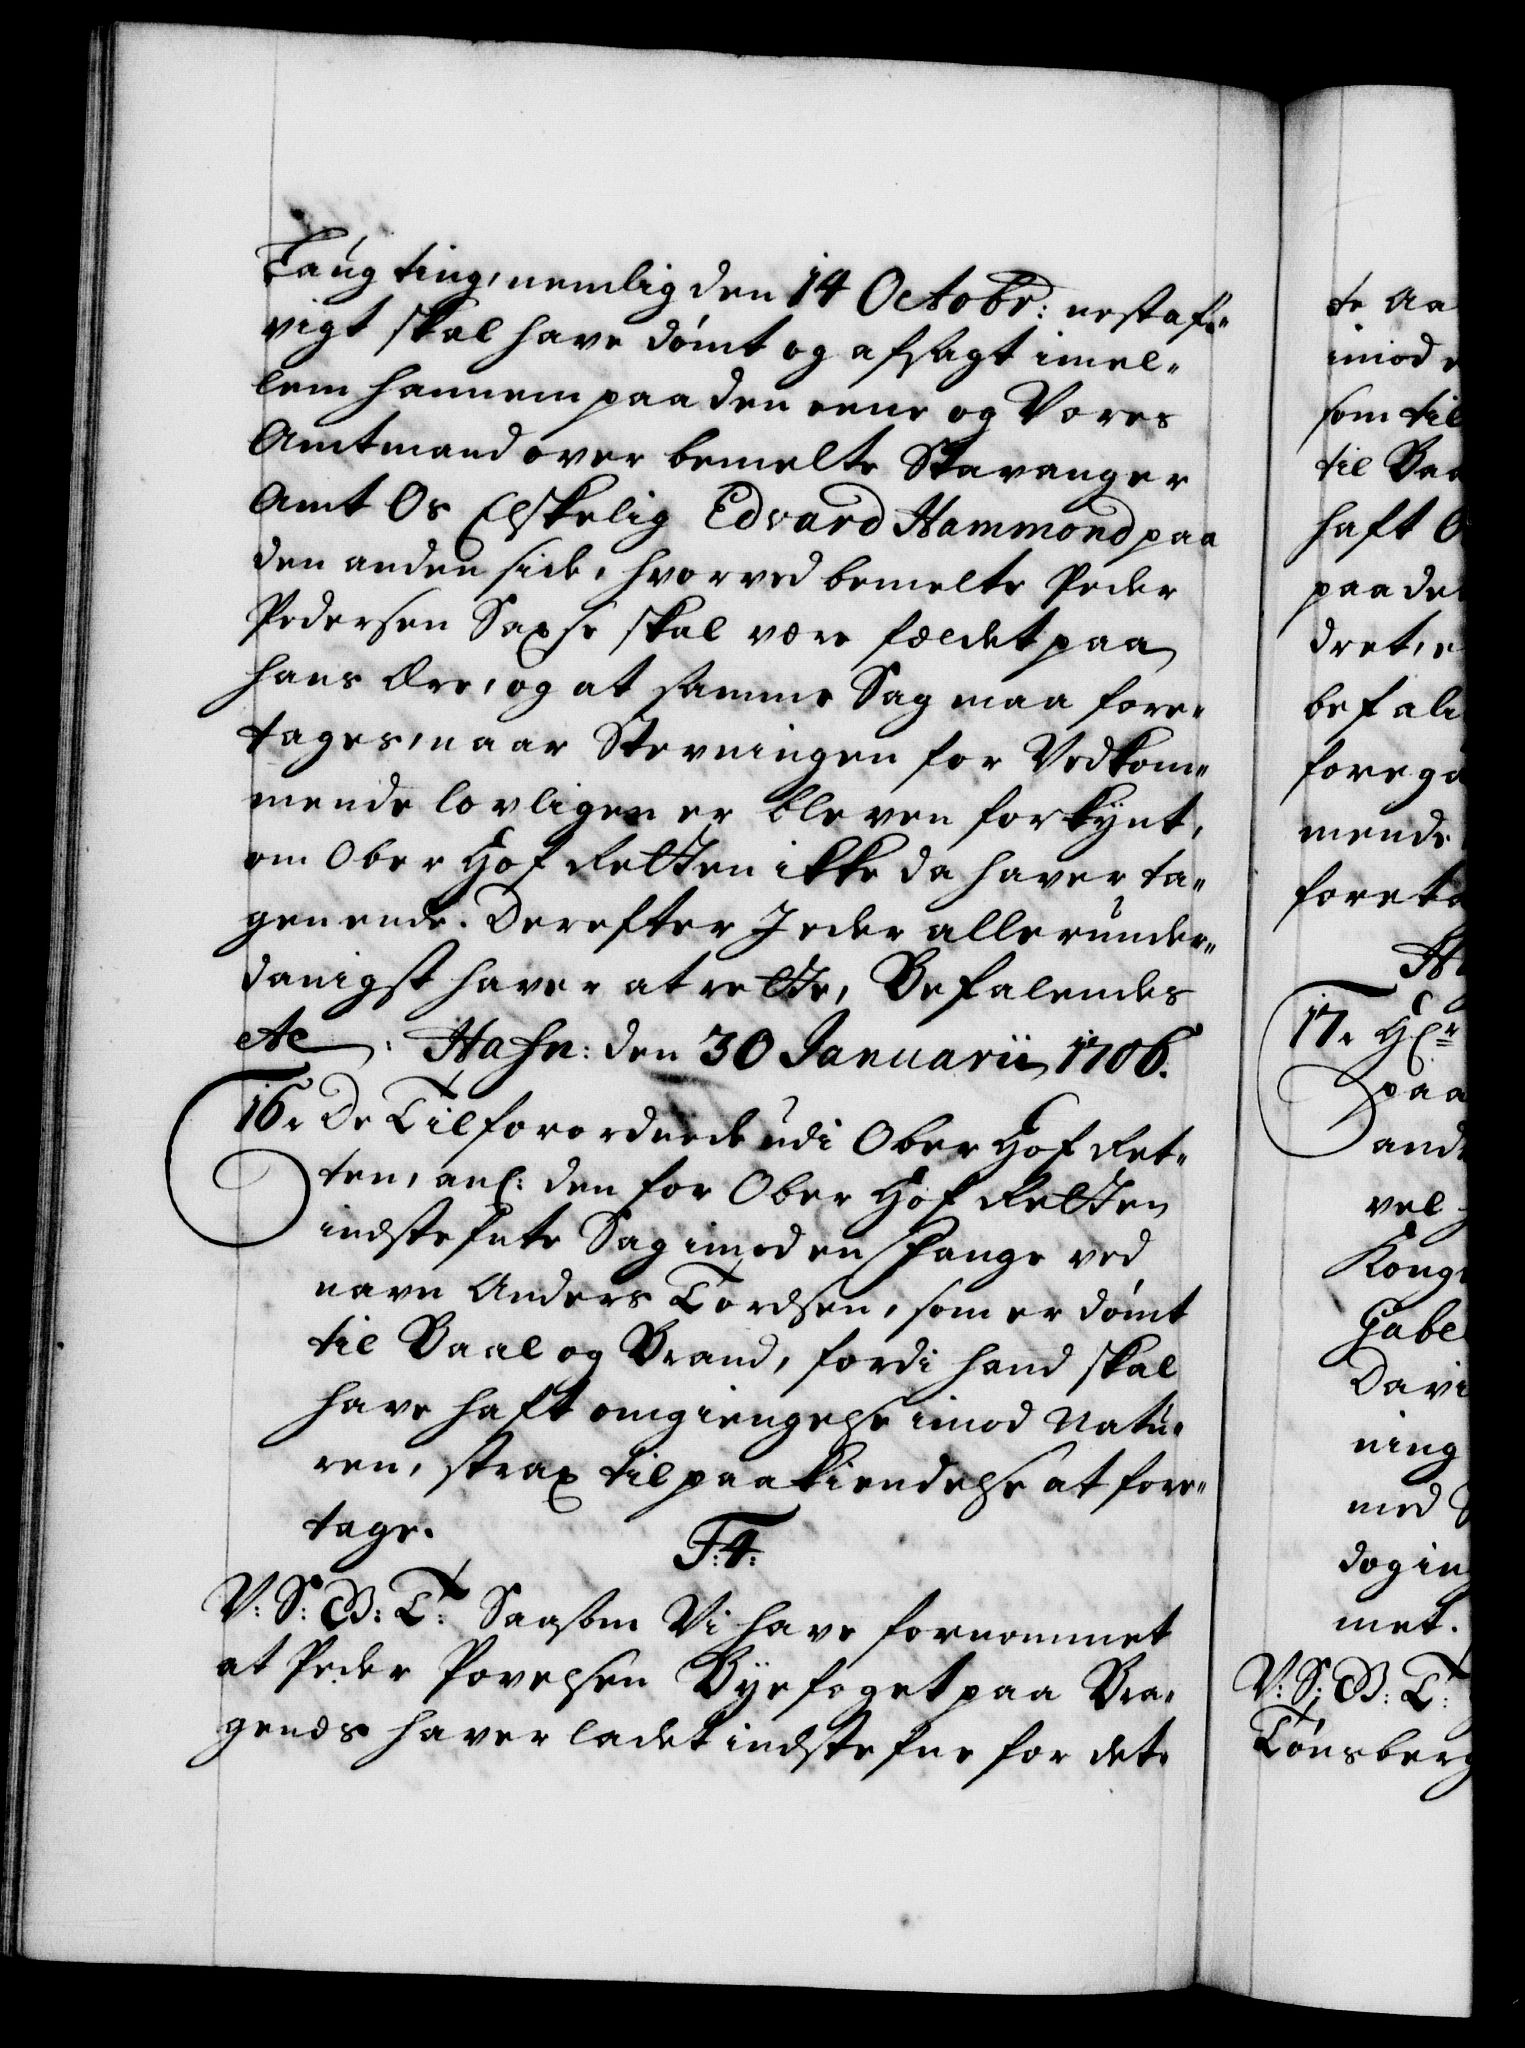 Laugting, nemlig den 14 Octobr: nestaf„
vigt skal have dømt og afsagt imel„
lem hannem paa den eene og Vores
Amtmand over bemelte Stavanger
Amt Os Elskelig Edvard Hammond paa
den anden side, hvorved bemelte Peder
Pedersen Saxse skal være fældet paa
hans Ære, og at samme Sag maa fore„
tages, naar Stevningen for Vedkom„
mende lovligen er bleven forkynt,
om Ober Hof Retten ikke da haver ta„
gen ende. Derefter I eder allerunder„
danigst haver at rette, Befalendes
etc: Hafn: den 30 Januarii 1706.
16. De Tilforordnede udi Ober Hof Ret„
ten, anl: den for Ober Hof Retten
indstefnte Sag imod en Fange ved
navn Anders Tordsen, som er dømt
til Baal og Brand, fordi hand skal
have haft omgiengelse imod Natu„
ren, strax til paakiendelse at fore„
tage.
F: 4:
V: S: G: T: Saasom Vi have fornommet
at Peder Povelsen Byefoget paa Bra„
genæs haver ladet indstefne for det„
te Aa
imod
som til
til Baa
haft O
paa de
dret, e
befali
forega
mende
foreta
17. Hr
paa
and
vel
Kong
Gabel
Davi
ning
med
dog in
met.
V: S: G: T:
Tønsberg